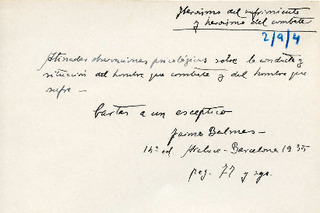 Heroísmo del sufrimiento
y heroísmo del combate
2/9/4
Atinadas observaciones psicológicas sobre la conducta y
situación del hombre que combate y del hombre que
sufre —
Cartas a un esceptico
Jaime Balmes —
14ª ed. Barcelona 1935
pag. 77 y sgs.